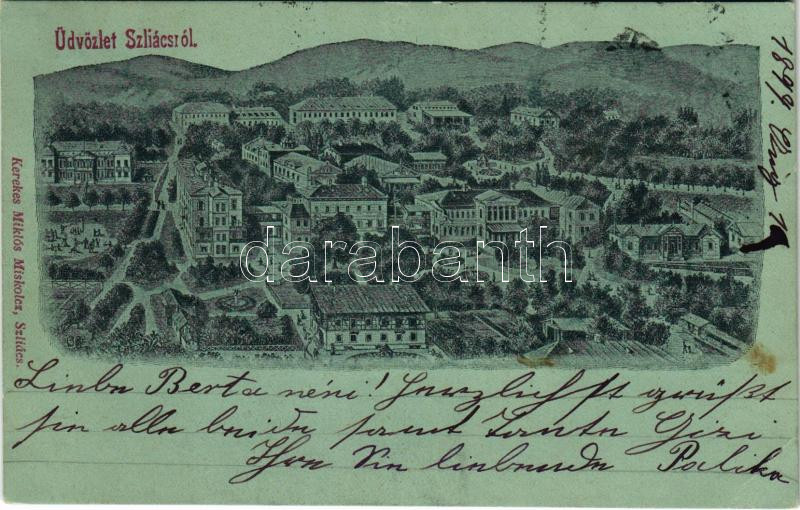 Üdvözlet Szliácsról.
1899. Aug
Kerekes Miklós Miskolcz, Szliács.
darabanth
Liebe Berta néni! Herzlichst grüßt
Sie alle beide samt Tante Gizi
Ihr Sie liebende Palika